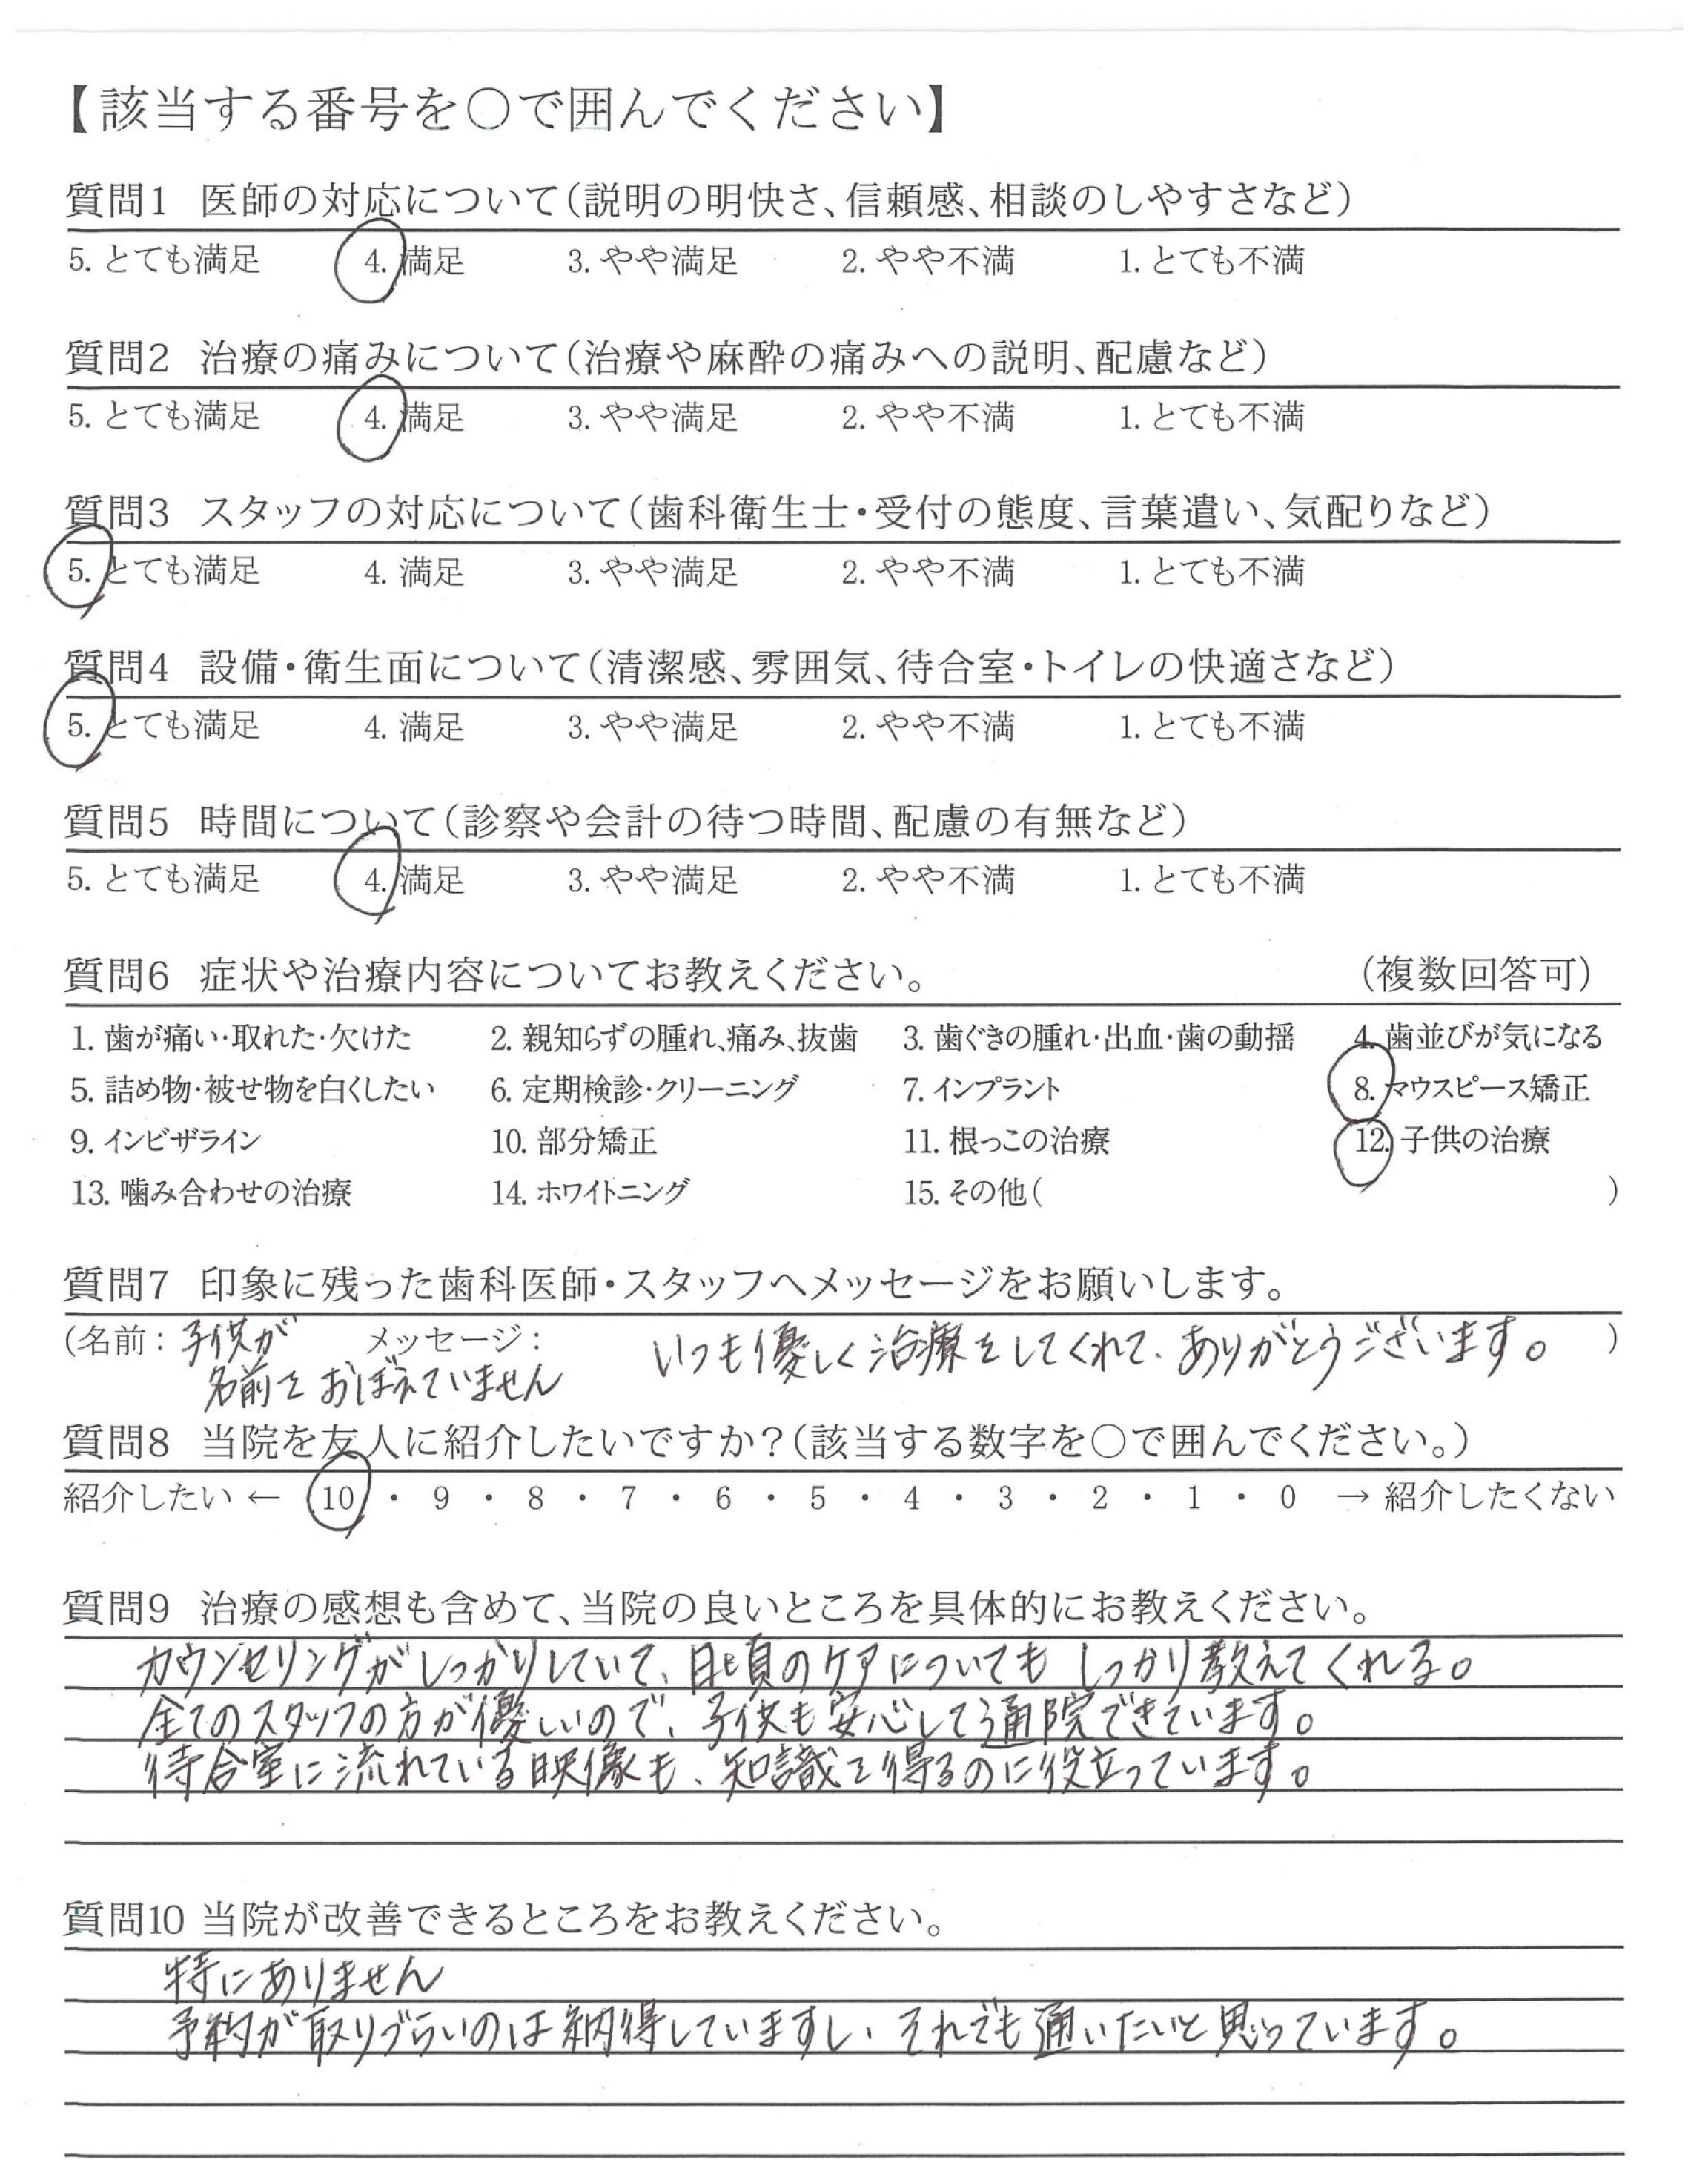 【該当する番号を○で囲んでください】
質問1 医師の対応について(説明の明快さ、信頼感、相談のしやすさなど)
5. とても満足 4. 満足 3. やや満足 2. やや不満 1. とても不満
質問2 治療の痛みについて(治療や麻酔の痛みへの説明、配慮など)
5. とても満足 4. 満足 3. やや満足 2. やや不満 1. とても不満
質問3 スタッフの対応について(歯科衛生士・受付の態度、言葉遣い、気配りなど)
5. とても満足 4. 満足 3. やや満足 2. やや不満 1. とても不満
質問4 設備・衛生面について(清潔感、雰囲気、待合室・トイレの快適さなど)
5. とても満足 4. 満足 3. やや満足 2. やや不満 1. とても不満
質問5 時間について(診察や会計の待つ時間、配慮の有無など)
5. とても満足 4. 満足 3. やや満足 2. やや不満 1. とても不満
質問6 症状や治療内容についてお教えください。 (複数回答可)
1. 歯が痛い・取れた・欠けた 2. 親知らずの腫れ、痛み、抜歯 3. 歯ぐきの腫れ・出血・歯の動揺 4. 歯並びが気になる
5. 詰め物・被せ物を白くしたい 6. 定期検診・クリーニング 7. インプラント 8. マウスピース矯正
9. インビザライン 10. 部分矯正 11. 根っこの治療 12. 子供の治療
13. 噛み合わせの治療 14. ホワイトニング 15. その他( )
質問7 印象に残った歯科医師・スタッフへメッセージをお願いします。
(名前: 子供が メッセージ: いつも優しく治療をしてくれて、ありがとうございます。 )
名前を おぼえていません
質問8 当院を友人に紹介したいですか?(該当する数字を○で囲んでください。)
紹介したい ← 10 ・ 9 ・ 8 ・ 7 ・ 6 ・ 5 ・ 4 ・ 3 ・ 2 ・ 1 ・ 0 → 紹介したくない
質問9 治療の感想も含めて、当院の良いところを具体的にお教えください。
カウンセリングがしっかりしていて、日頃のケアについても しっかり教えてくれる。
全てのスタッフの方が優しいので、子供も安心して通院できています。
待合室に流れている映像も、知識を得るのに役立っています。
質問10 当院が改善できるところをお教えください。
特にありません
予約が取りづらいのは納得していますし、それでも通いたいと思っています。